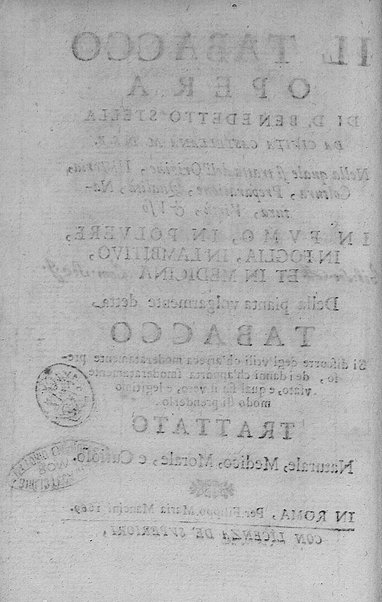 IL TABACCO
OPERA
DI D. BENEDETTO STELLA
DA CIVITA CASTELLANA
Nella quale si tratta dell'Origine, Historia,
Coltura, Preparatione, Qualità, Na-
tura, Virtù, & Uso
IN FVMO, IN POLVERE,
IN FOGLIA, IN LAMBITIVO,
ET IN MEDICINA
Della pianta volgarmente detta
TABACCO
Si discorre degl'vtili ch'arreca moderatamente pre-
so, dei danni ch'apporta immoderatamente
vsato, e qual sia il vero, e legitimo
modo di prenderlo.
TRATTATO
Naturale, Medico, Morale, e Curioso.
IN ROMA, Per Filippo Maria Mancini 1669.
CON LICENZA DE' SVPERIORI,